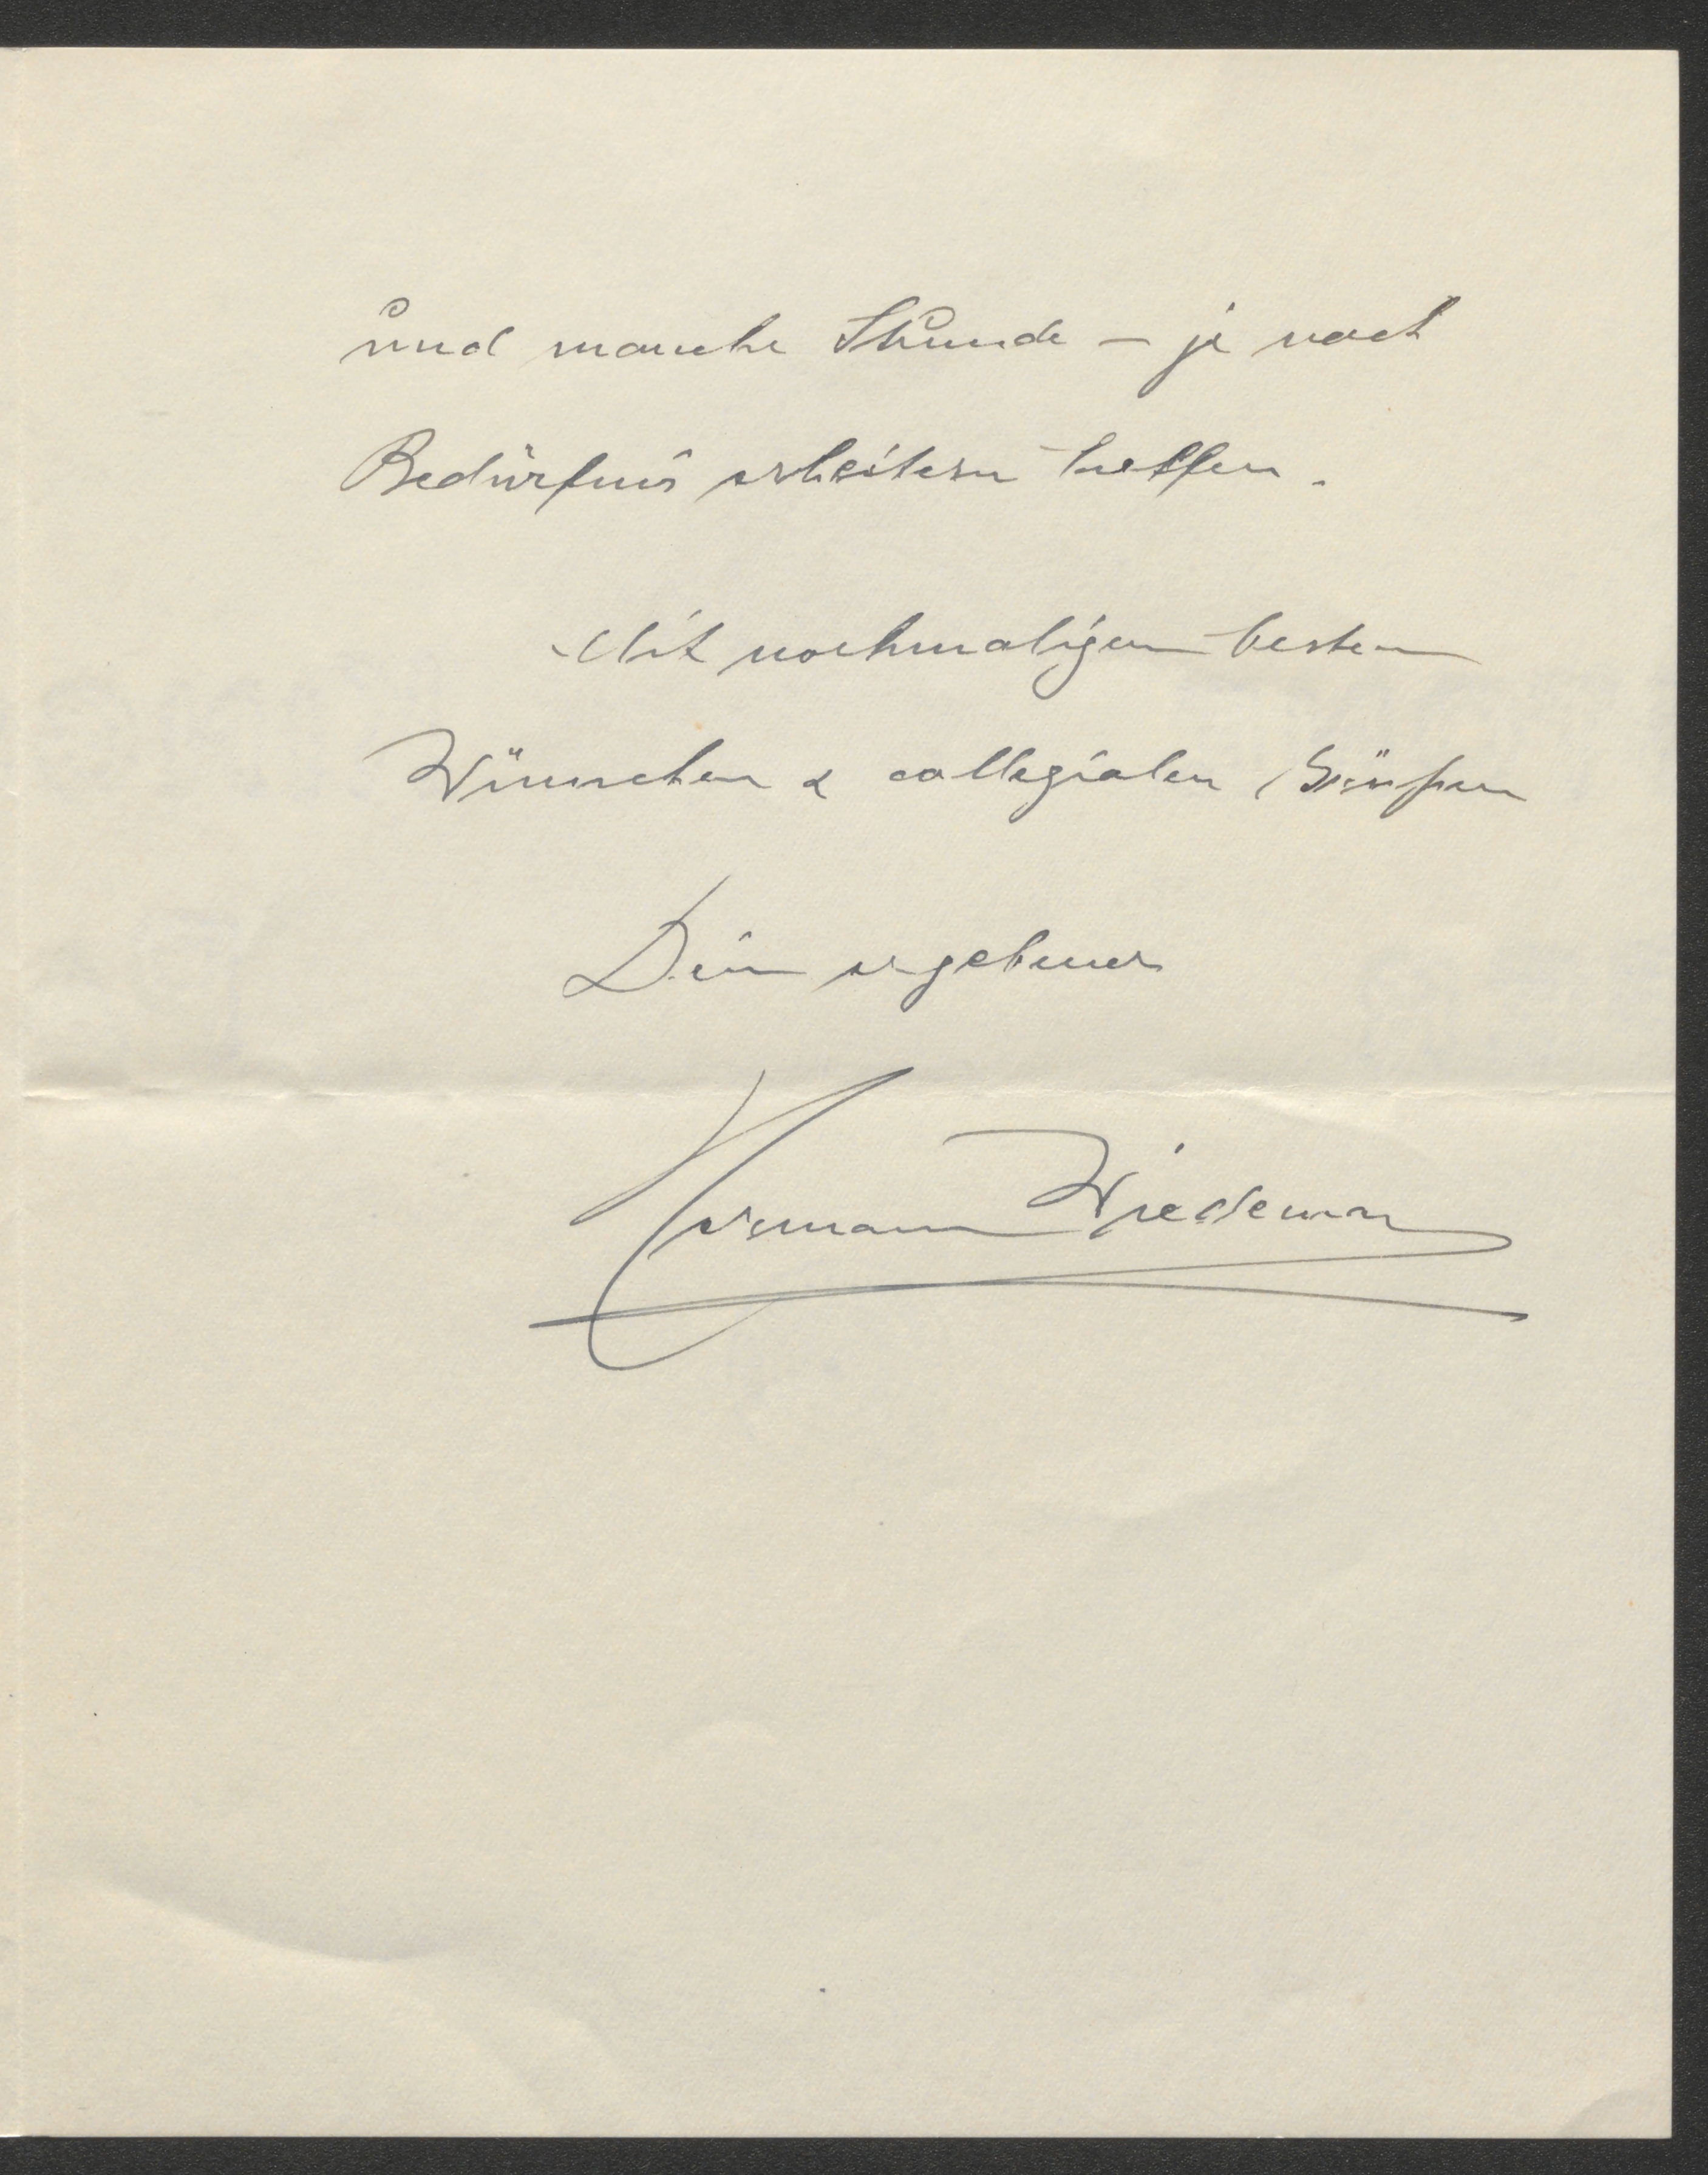 und manche Stunde – je nach
Bedürfnis erheitern helfen.
Mit nochmaligen besten
Wünschen & collegialen Grüßen
Dein ergebener
Hermann Wiedemann